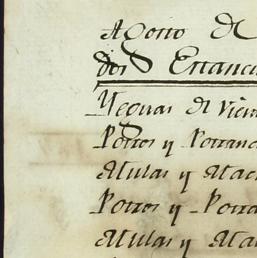 Agosto de
dos Estanci
Yeguas de Vien
Potros y Potranc
Mulas y Mac
Potros y Potra
Mulas y Ma